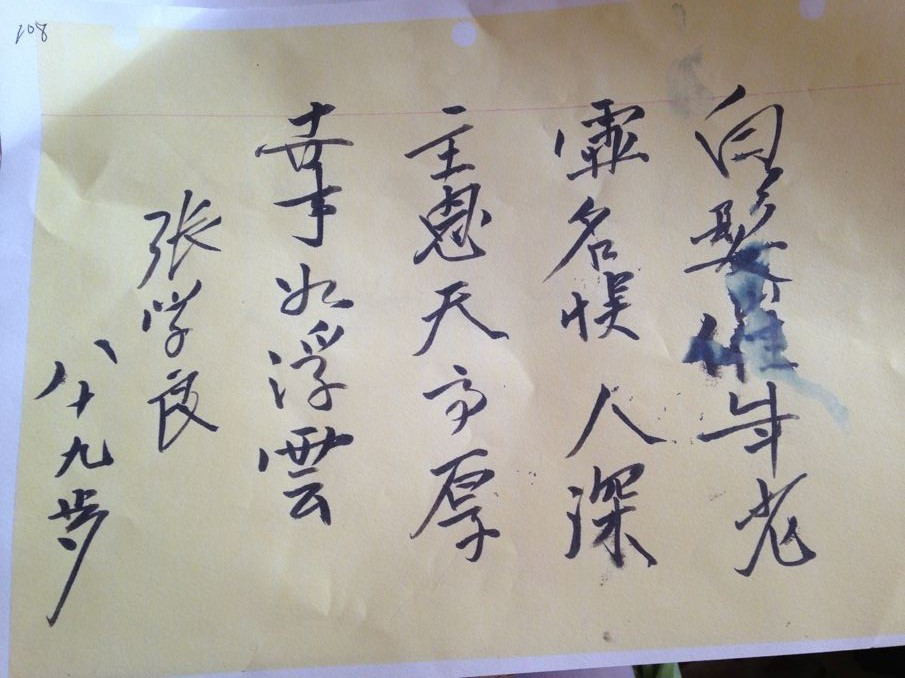 108
白髮催年老
虛名悮人深
主恩天高厚
世事如浮雲
張学良
八十九歲